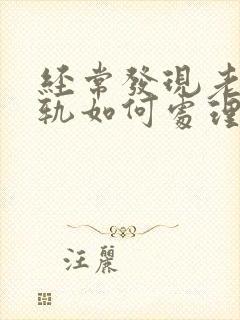 經常發現老
軌如何處理
汪麗